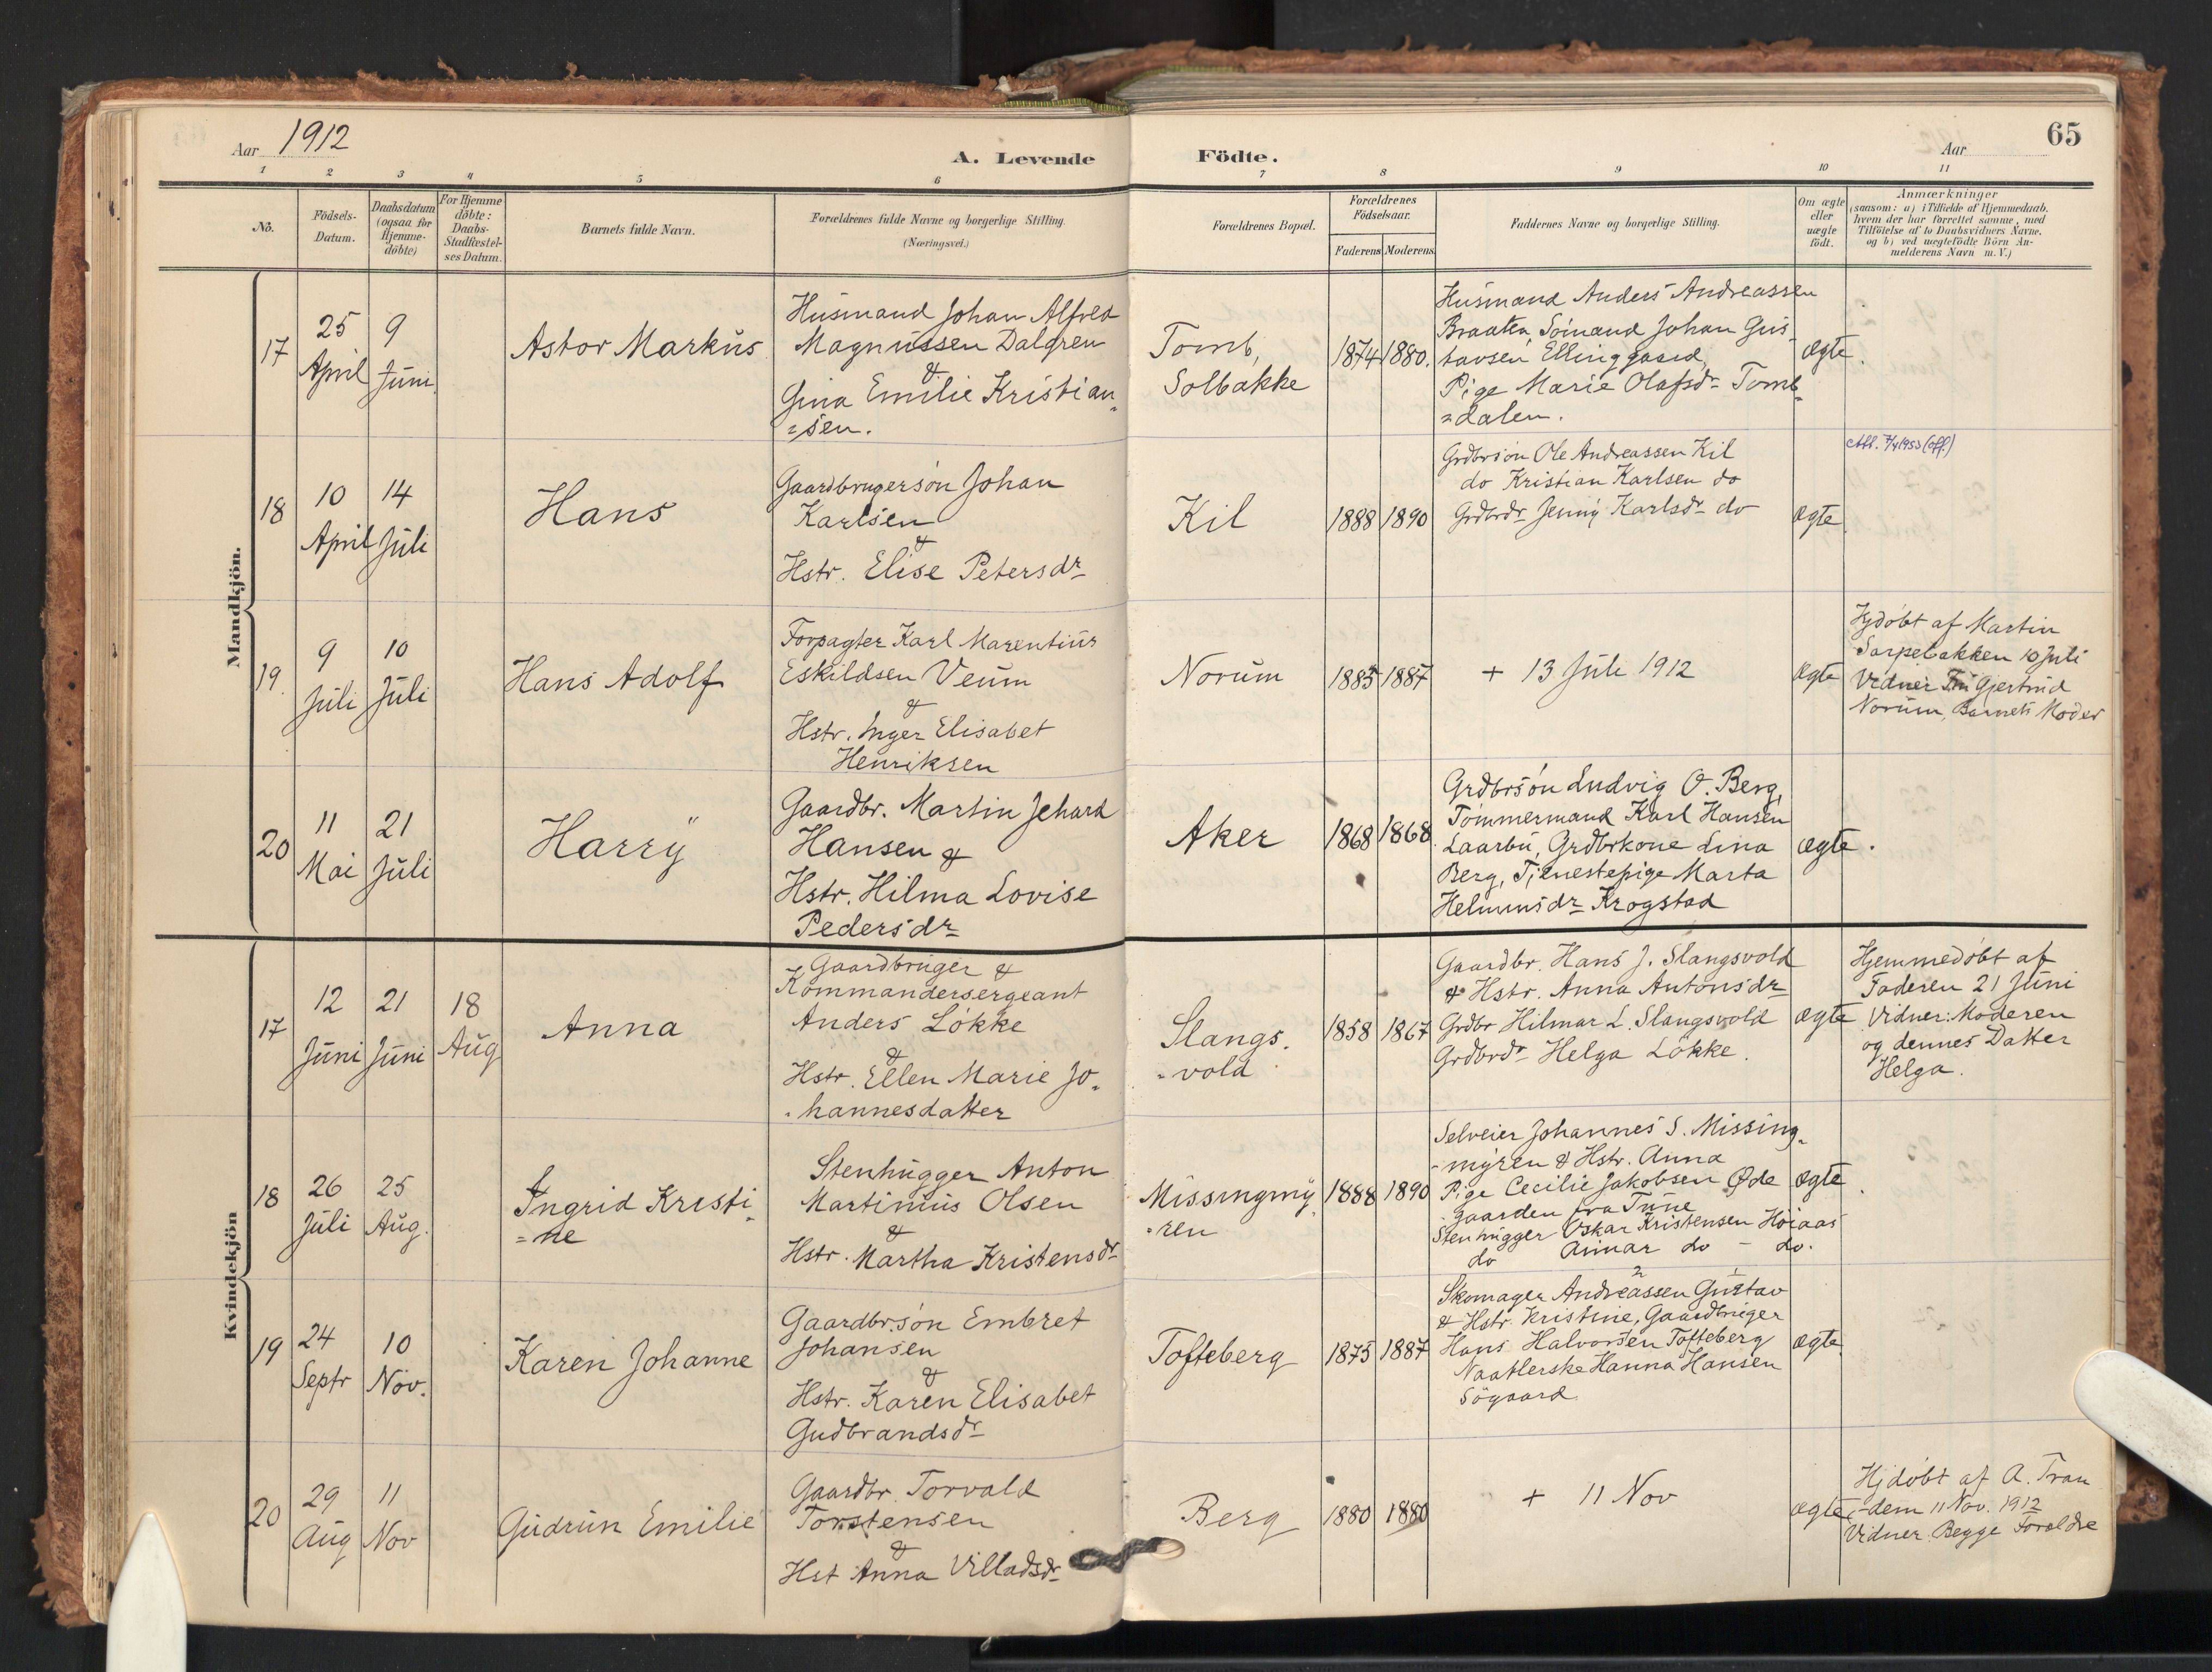 Aar 1912
A. Levende Födte.
Aar
65
1 2 3 4 5 6 7 8 9 10 11
No.
Födsels-
Datum.
Daabsdatum
(ogsaa for
Hjemme-
døbte)
For Hjemme
døbte:
Daabs-
Stadfæstel-
ses Datum.
Barnets fulde Navn.
Forældrenes fulde Navne og borgerlige Stilling.
(Næringsvei.)
Forældrenes Bopæl.
Forældrenes
Födselsaar.
Faderens Moderens
Faddernes Navne og borgerlige Stilling.
Om ægte
eller
uægte
født.
Anmærkninger
(saasom: a) i Tilfælde af Hjemmedaab,
hvem der har forrettet samme, med
Tilföielse af to Daabsvidners Navne.
og b) ved uægtefödte Börn An-
melderens Navn m.V.)
Mandkjön.
17
25
April
9
Juni
Astor Markus
Husmand Johan Alfred
Magnussen Dalgren
&
Gina Emilie Kristian-
=sen.
Tomb,
Solbakke
1874 1880.
Husmand Anders Andreassen
Braaten, Sömand Johan Gus-
tavsen Ellinggaard,
Pige Marie Olafsdr Tomb-
=dalen.
ægte.
18
10
April
14
Juli
Hans
Gaardbrugersön Johan
Karlsen
&
Hstr. Elise Petersdr
Kil
1888 1890
Grdbrsön Ole Andreassen Kil
do Kristian Karlsen do
Grdbrdr Jenny Karlsdr do
ægte
19.
9
Juli
10
Juli
Hans Adolf
Forpagter Karl Marentius
Eskildsen Veum
&
Hstr. Inger Elisabet
Henriksen
Norum
1885 1887
+ 13 Juli 1912
ægte
Hjdöbt af Martin
Sarpebakken 10 Juli
Vidner Gjertrud
Norum, Barnets Moder
20
11
Mai
21
Juli
Harry
Gaardbr. Martin Jehard
Hansen &
Hstr. Hilma Lovise
Pedersdr
Aker
1868 1868.
Grdbrsön Ludvig O. Berg,
Tömmermand Karl Hansen
Laarbu, Grdbrkone Lina
Berg, Tjenestepige Marta
Helmersdr Krogstad
ægte.
Kvindekjön
17
12
Juni
21
Juni
18
Aug
Anna
Gaardbruger &
Kommandersergeant
Anders Lökke
&
Hstr. Ellen Marie Jo-
-hannesdatter
Slangs-
-vold
1858 1867
Gaardbr. Hans J. Slangsvold
& Hstr. Anna Antonsdr
Grdbr Hilmar L. Slangsvold
Grdbrdr Helga Lökke.
ægte
Hjemmedöbt af
Faderen 21 Juni
Vidner: Moderen
og dennes Datter
Helga.
18
26
Juli
25
Aug.
Ingrid Kristi-
=ne
Stenhugger Anton
Martinius Olsen
&
Hstr. Martha Kristensdr
Missingmy-
-ren
1888 1890
Selveier Johannes S. Missing-
-myren & Hstr. Anna
Pige Cecilie Jakobsen Øde
gaarden fra Tune
Stenhugger Oskar Kristensen Höiaas
do do - do.
ægte.
19
24
Septr
10
Nov.
Karen Johanne
Gaardbr.sön Embret
Johansen
&
Hstr. Karen Elisabet
Gudbrandsdr
Tofteberg
1875 1887
Skomager Andreassen Gustav
& Hstr. Kristine, Gaardbruger
Hans Halvorsen Tofteberg
Naatlerske Hanna Hansen
Sögaard
ægte.
20
29
Aug
11
Nov
Gudrun Emilie
Gaardbr. Torvald
Torstensen
&
Hst Anna Villadsdr
Berg
1880 1880
+ 11 Nov
ægte
Hjdöbt af A. Tran
-dem 11 Nov. 1912
Vidner Begge Foreldre